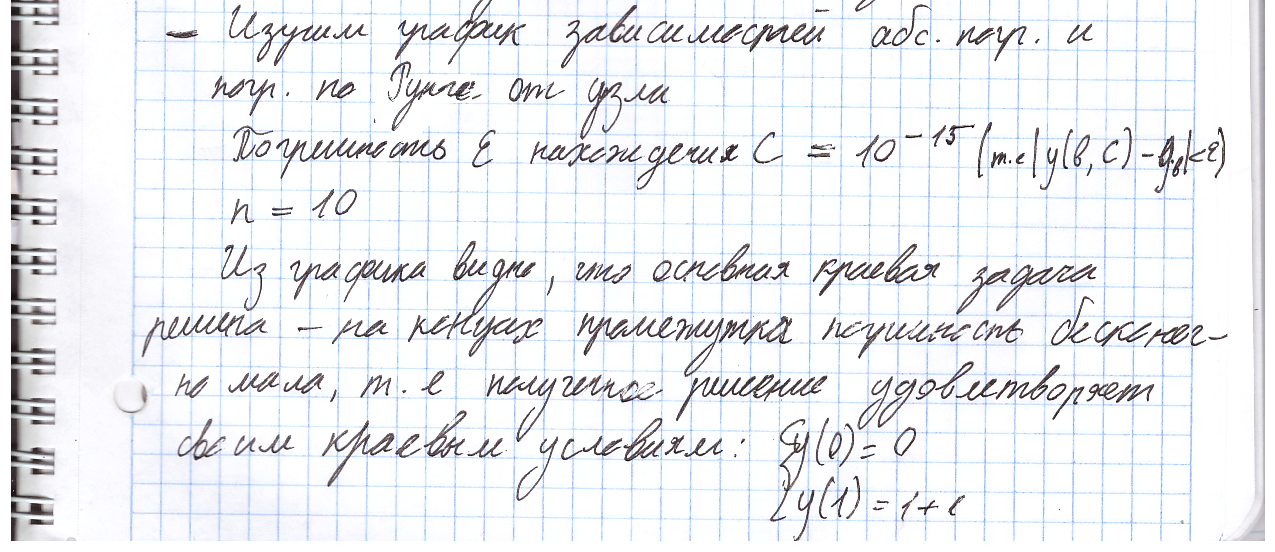 – Изучим график зависимостей абс. погр. и
погр. по Рунге от узла
Погрешность ε нахождения C = 10⁻¹⁵ (т.е |y(b, C) – y_b|<ε)
n = 10
Из графика видно, что основная краевая задача
решена – на концах промежутка погрешность бесконеч-
но мала, т. е полученное решение удовлетворяет
своим краевым условиям: {y(0) = 0
{y(1) = 1+e